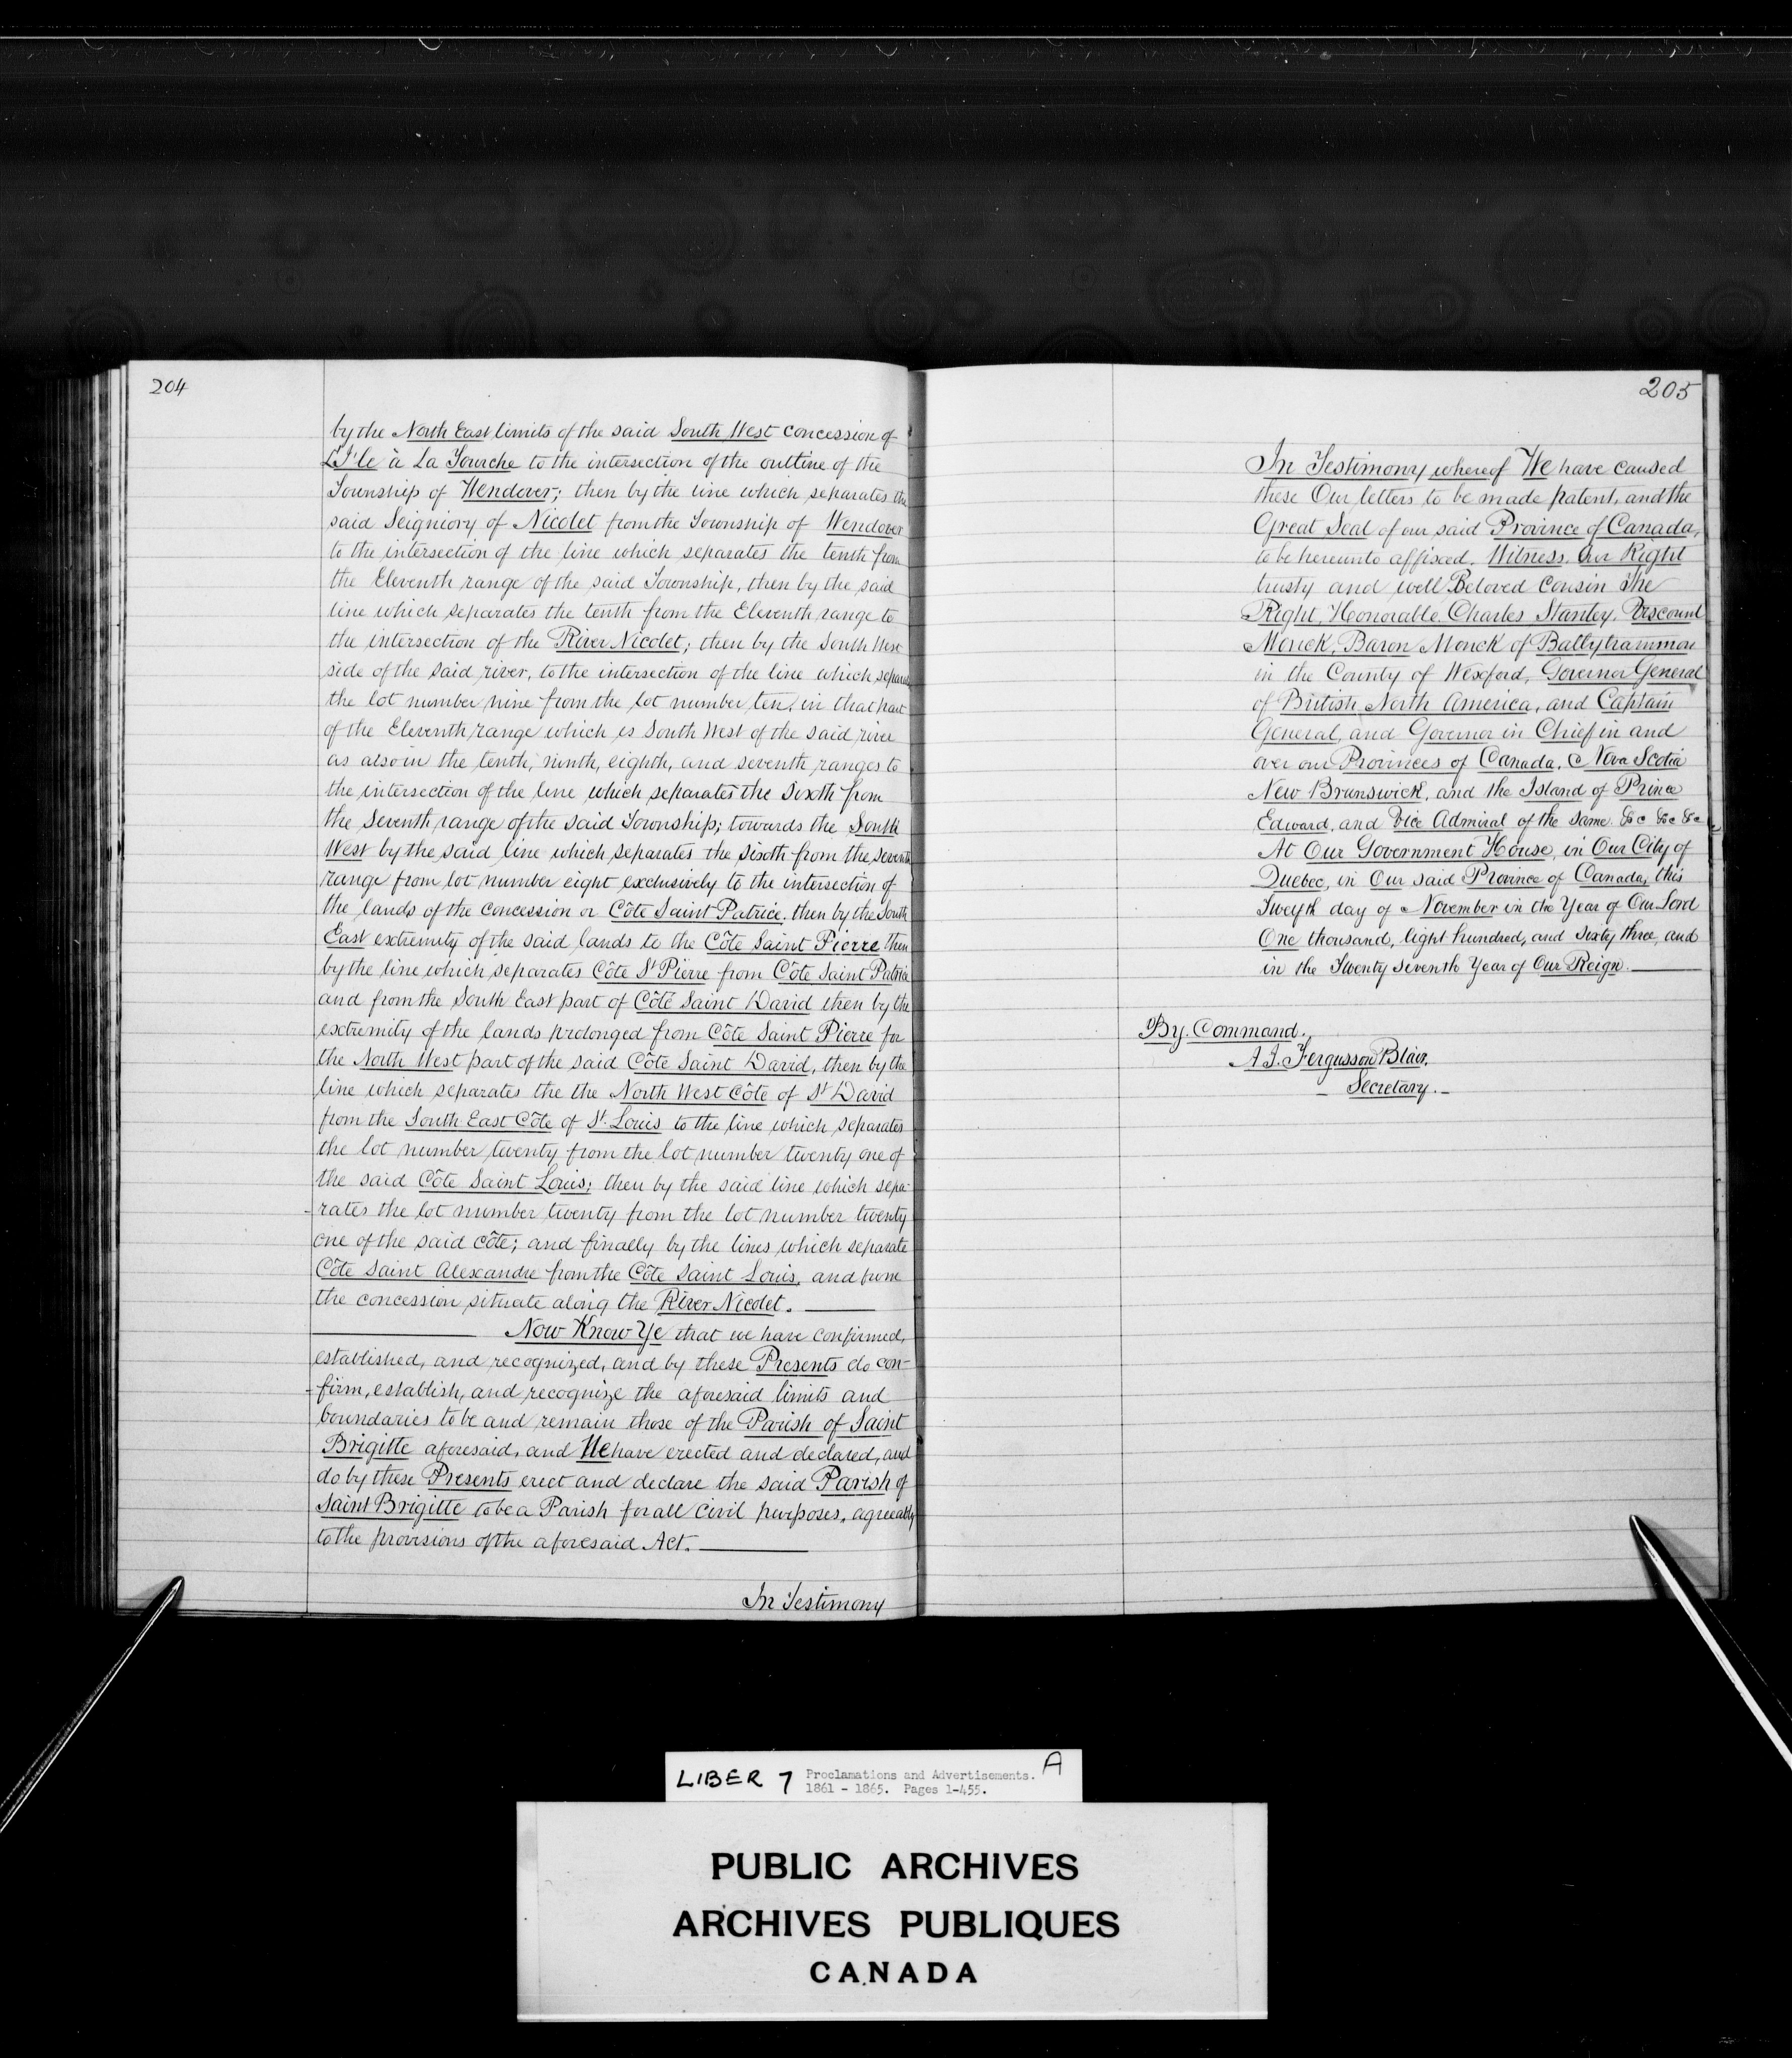 204
by the North East limits of the said South West concession of
L'I'le à La Fourche to the intersection of the outline of the
Township of Wendover; then by the line which separates the
said Seigniory of Nicolet from the Township of Wendover
to the intersection of the line which separates the tenth from
the Eleventh range of the said Township, then by the said
line which separates the tenth from the Eleventh range to
the intersection of the River Nicolet; then by the South West
side of the said river, to the intersection of the line which separates
the lot number nine from the lot number ten, in that part
of the Eleventh range which is South West of the said river
as also in the tenth, ninth, eighth, and seventh ranges to
the intersection of the line which separates the Sixth from
the Seventh range of the said Township; towards the South
West by the said line which separates the sixth from the seventh
range from lot number eight exclusively to the intersection of
the lands of the concession or Côte Saint Patrice, then by the South
East extremity of the said lands to the Côte Saint Pierre then
by the line which separates Côte St Pierre from Côte Saint Patrice
and from the South East part of Côté Saint David then by the
extremity of the lands prolonged from Côte Saint Pierre for
the North West part of the said Côte Saint David, then by the
line which separates the the North West Côte of St David
from the South East Côte of St. Louis to the line which separates
the lot number twenty from the lot number twenty one of
the said Côte Saint Louis; then by the said line which sepa-
-rates the lot number twenty from the lot number twenty
one of the said côte; and finally by the lines which separate
Côte Saint Alexandre from the Côte Saint Louis, and from
the concession situate along the River Nicolet.
Now Know Ye that we have confirmed,
established, and recognized, and by these Presents do con-
-firm, establish, and recognize the aforesaid limits and
boundaries to be and remain those of the Parish of Saint
Brigitte aforesaid, and We have erected and declared, and
do by these Presents erect and declare the said Parish of
Saint Brigitte to be a Parish for all Civil purposes, agreeably
to the provisions of the aforesaid Act.
In Testimony
205
In Testimony whereof We have caused
these Our letters to be made patent, and the
Great Seal of our said Province of Canada,
to be hereunto affixed. Witness, Our Right
trusty and well Beloved Cousin The
Right, Honorable Charles Stanley, Viscount
Monck, Baron Monck of Ballytrammon
in the County of Wexford, Governor General
of British North America, and Captain
General, and Governor in Chief in and
over our Provinces of Canada, Nova Scotia
New Brunswick, and the Island of Prince
Edward, and Vice Admiral of the same. &c &c &c
At Our Government House, in Our City of
Quebec, in Our said Province of Canada, this
day of November in the Year of Our Lord
One thousand, eight hundred, and Sixty three, and
in the Twenty Seventh Year of Our Reign.
By. Command.
A J. Fergusson Blair.
Secretary.
LIBER 7 Proclamations and Advertisements. A
1861 - 1865. Pages 1-455.
PUBLIC ARCHIVES
ARCHIVES PUBLIQUES
CANADA